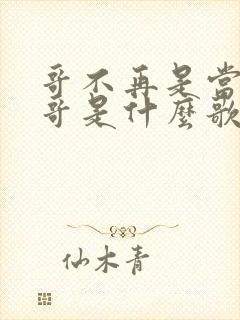 哥不再是當
哥是什麼歌
仙木青